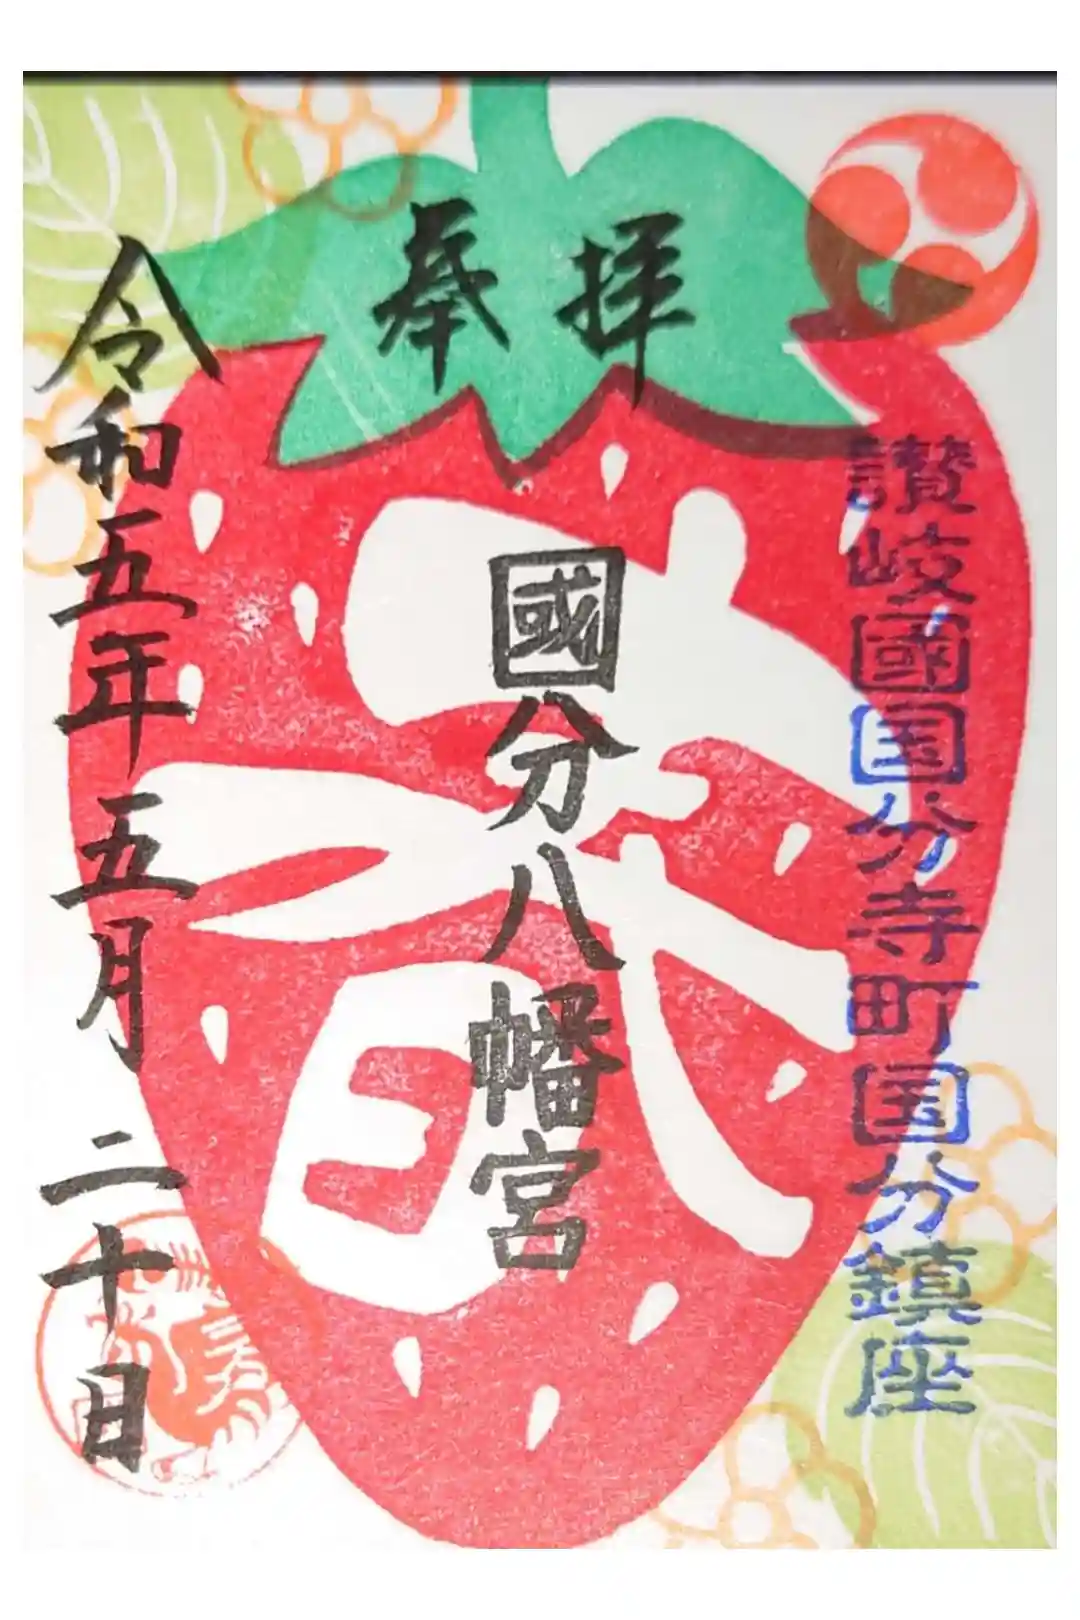 奉拝
讃岐國国分寺町国分鎮座
春
國分八幡宮
令和五年五月二十日